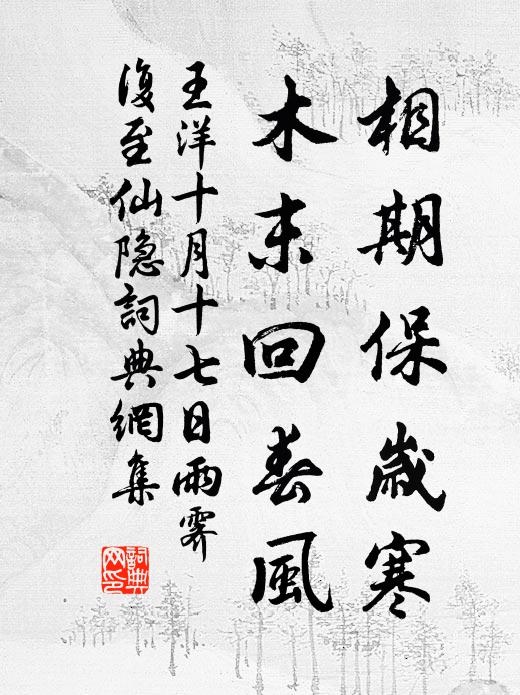 相期保歲寒
木末回春風
王洋十月十七日雨霽
復至仙隐詞典網集
詞典网印